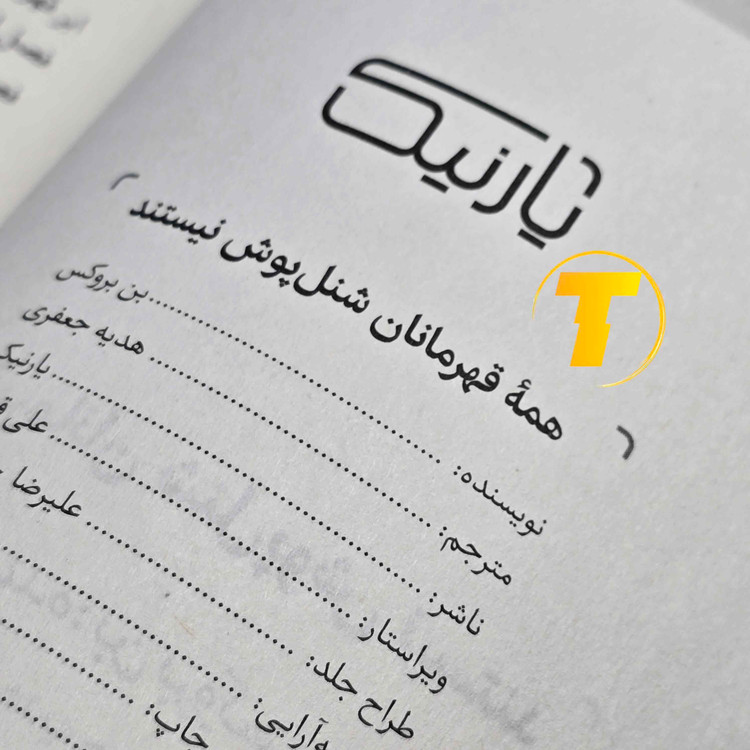 یارنیک
همهٔ قهرمانان شنل‌پوش نیستند
نویسنده: بن بروکس
مترجم: هدیه جعفری
ناشر: یارنیک
ویراستار: علی
طراح جلد: علیرضا
چاپ:
T